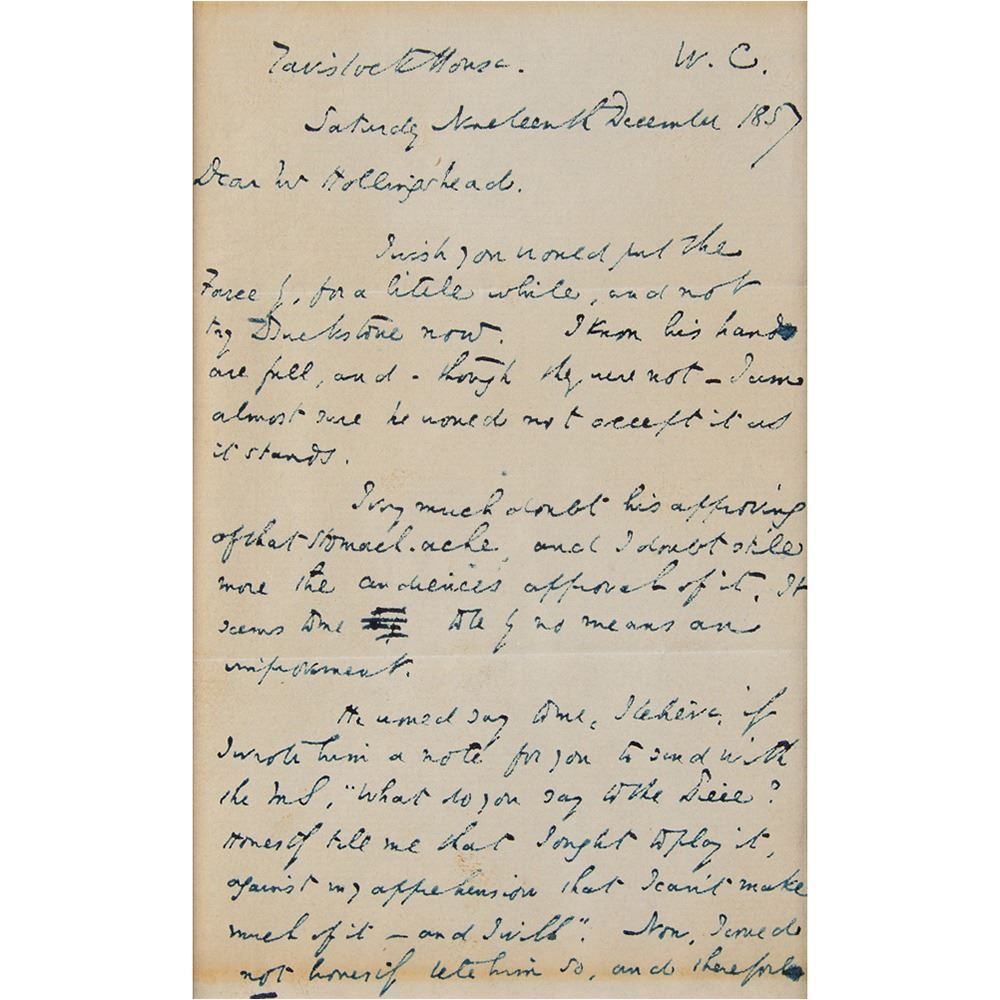 Tavistock House. W. C.
Saturday Nineteenth December 1857
Dear Mr Hollingshead.
I wish you would put the
Farce by, for a little while, and not
try Buckstone now. I know his hands
are full, and - though they were not - I am
almost sure he would not accept it as
it stands.
I very much doubt his approving
of that stomach-ache, and I doubt still
more the audience's approval of it. It
seems to me to be by no means an
improvement.
He would say to me, I believe, if
I wrote him a note for you to send with
the MS, "What do you say to the Piece?
Honestly tell me that I ought to play it,
against my apprehension that I can't make
much of it - and I will". Now, I could
not honestly tell him so, and therefore